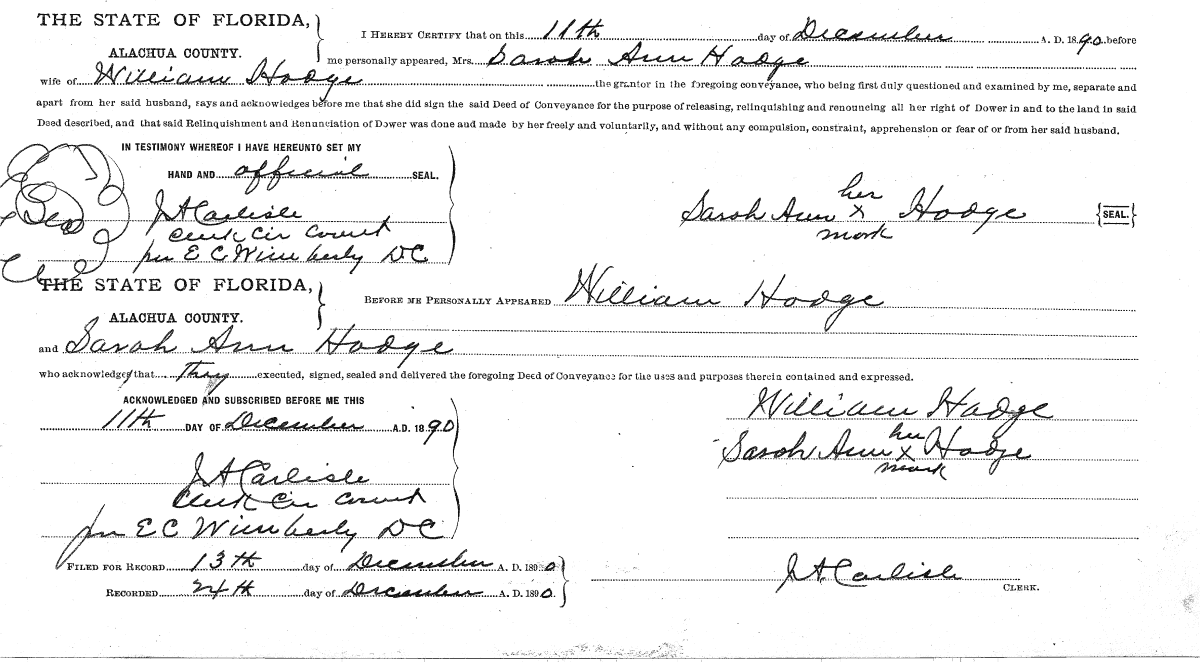 THE STATE OF FLORIDA,
ALACHUA COUNTY.
I HEREBY CERTIFY that on this 11th day of December A. D. 1890 before
me personally appeared, Mrs. Sarah Ann Hodge
wife of William Hodge the grantor in the foregoing conveyance, who being first duly questioned and examined by me, separate and
apart from her said husband, says and acknowledges before me that she did sign the said Deed of Conveyance for the purpose of releasing, relinquishing and renouncing all her right of Dower in and to the land in said
Deed described, and that said Relinquishment and Renunciation of Dower was done and made by her freely and voluntarily, and without any compulsion, constraint, apprehension or fear of or from her said husband.
IN TESTIMONY WHEREOF I HAVE HEREUNTO SET MY
HAND AND official SEAL.
Seal
J A Carlisle
Clerk Cir Court
per E C Wimberly DC
her
Sarah Ann x Hodge {SEAL.}
mark
THE STATE OF FLORIDA,
ALACHUA COUNTY.
BEFORE ME PERSONALLY APPEARED William Hodge
and Sarah Ann Hodge
who acknowledged that They executed, signed, sealed and delivered the foregoing Deed of Conveyance for the uses and purposes therein contained and expressed.
ACKNOWLEDGED AND SUBSCRIBED BEFORE ME THIS
11th DAY OF December A.D. 1890
J A Carlisle
Clerk Cir Court
per E C Wimberly DC
William Hodge
her
Sarah Ann x Hodge
mark
FILED FOR RECORD 13th day of December A. D. 1890
RECORDED 24th day of December A. D. 1890.
J A Carlisle
CLERK.